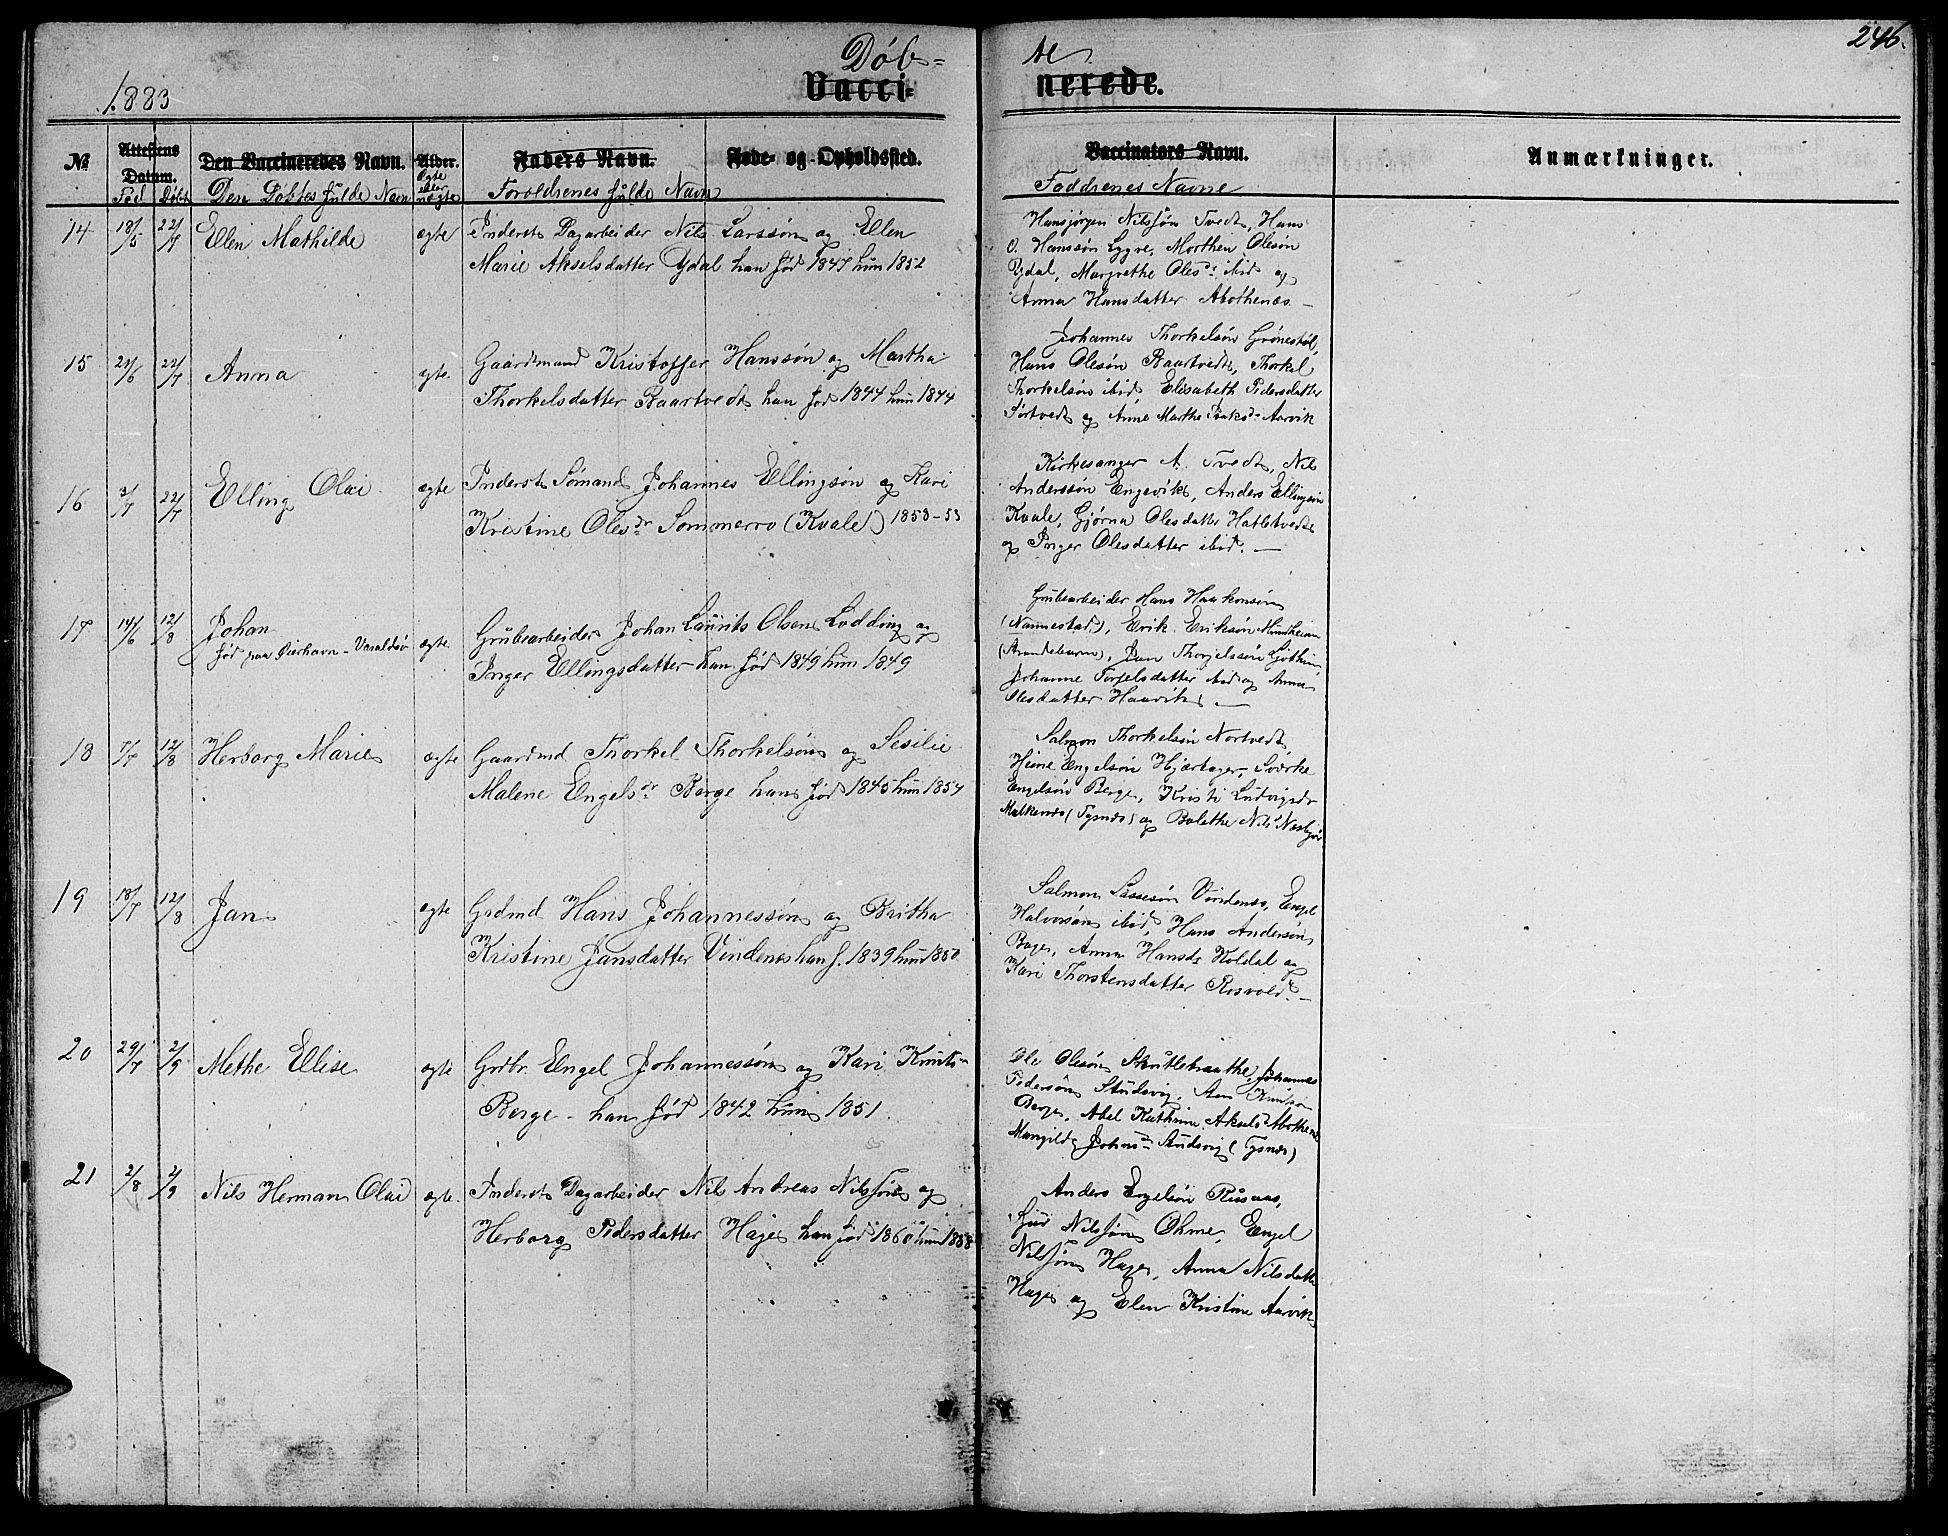 246.
Døb= te
1883 Vacci= nerede.
№ Attestens Datum. Den Vaccineredes Navn. Alder. Faders Navn. Føde- og Opholdssted. Vaccinators Navn. Anmærkninger.
Fød Døbt Den Døbtes fulde Navn Ægte eller uægte Forældrenes fulde Navn Faddrenes Navne
14 18/5 22/7 Ellen Mathilde ægte Inderst Dagarbeider Nils Larssøn og Ellen
Marie Akselsdatter Ydal han fød 1847 hun 1852
Hansjørgen Nilssøn Tvedt, Hans
O. Hanssøn Lygre, Morthen Olesøn
Ydal, Margrethe Olesdr ibid og
Anna Hansdatter Abothenæs –
15 24/6 22/7 Anna ægte Gaardmand Kristoffer Hanssøn og Martha
Thorkelsdatter Baartvedt han fød 1844 hun 1844
Johannes Thorkelsøn Grønestøl,
Hans Olesøn Baartvedt, Thorkel
Thorkelsøn ibid, Elisabeth Pedersdatter
Sørtvedt og Anne Marthe Isaksd. Aarvik
16 3/7 22/7 Elling Olai ægte Inderst Sømand Johannes Ellingsøn og Kari
Kristine Olesdr Sommerro (Kvale) 1858–53
Kirkesanger A. Tvedt, Nils
Anderssøn Engevik, Anders Ellingsøn
Kvale, Gjørna Olesdatter Hatletvedt
og Inger Olesdatter ibid. —
17 14/6 12/8 Johan ægte Grubearbeider Johan Laurits Olsen Lodding og
fød paa Dierhavn – Varaldsø
Inger Ellingsdatter han fød 1849 hun 1849
Grubearbeider Hans Haakonsøn
(Nannestad), Erik Eriksøn Mundheim
(Strandebarm), Jan
Johanne Torjelsdatter ibid og Anna
Olesdatter Haavik —
18 7/7 12/8 Herborg Marie ægte Gaardmd Thorkel Thorkelsøn og Sesilie
Malene Engelsdr Berge han fød 1845 hun 1854
Salmon Thorkelsøn Nortvedt
Heine Engelsøn Hjartager, Sverke
Engelsøn Berge, Kristi Ludvigsdr
Malkenes (Tysnæs) og Bolethe Nilsd
19 18/7 12/8 Jan ægte Grdmd Hans Johannessøn og Britha
Kristine Jansdatter Vindenes han f. 1839 hun 1850
Salmon Sassesøn Vindenes, Engel
Halvorsøn ibid, Hans Andersøn
Bage, Anna Hansdr Koldal og
Kari Thorstensdatter Rosvold –
20 29/7 2/9 Methe Ellise ægte Grdbr Engel Johannessøn og Kari Knutsdr
Berge – han fød 1842 hun 1851
Ole Olesøn Skutlebraathe, Johannes
Pedersøn Studsvig, Knutsøn
Berge, Abel Kathrine Akselsd Abothenæs
Mangild Johnsdr Studsvig (Tysnæs)
21 2/8 2/9 Nils Herman Olai ægte. Inderst Dagarbeider Nils Andreas Nilssøn og
Herborg Pedersdatter Hage han fød 1860 hun 1858
Anders Engelsøn Rusaas,
Nilssøn Ohme, Engel
Nilssøn Hage, Anna Nilsdatter
Hage og Elen Kristine Aarvik